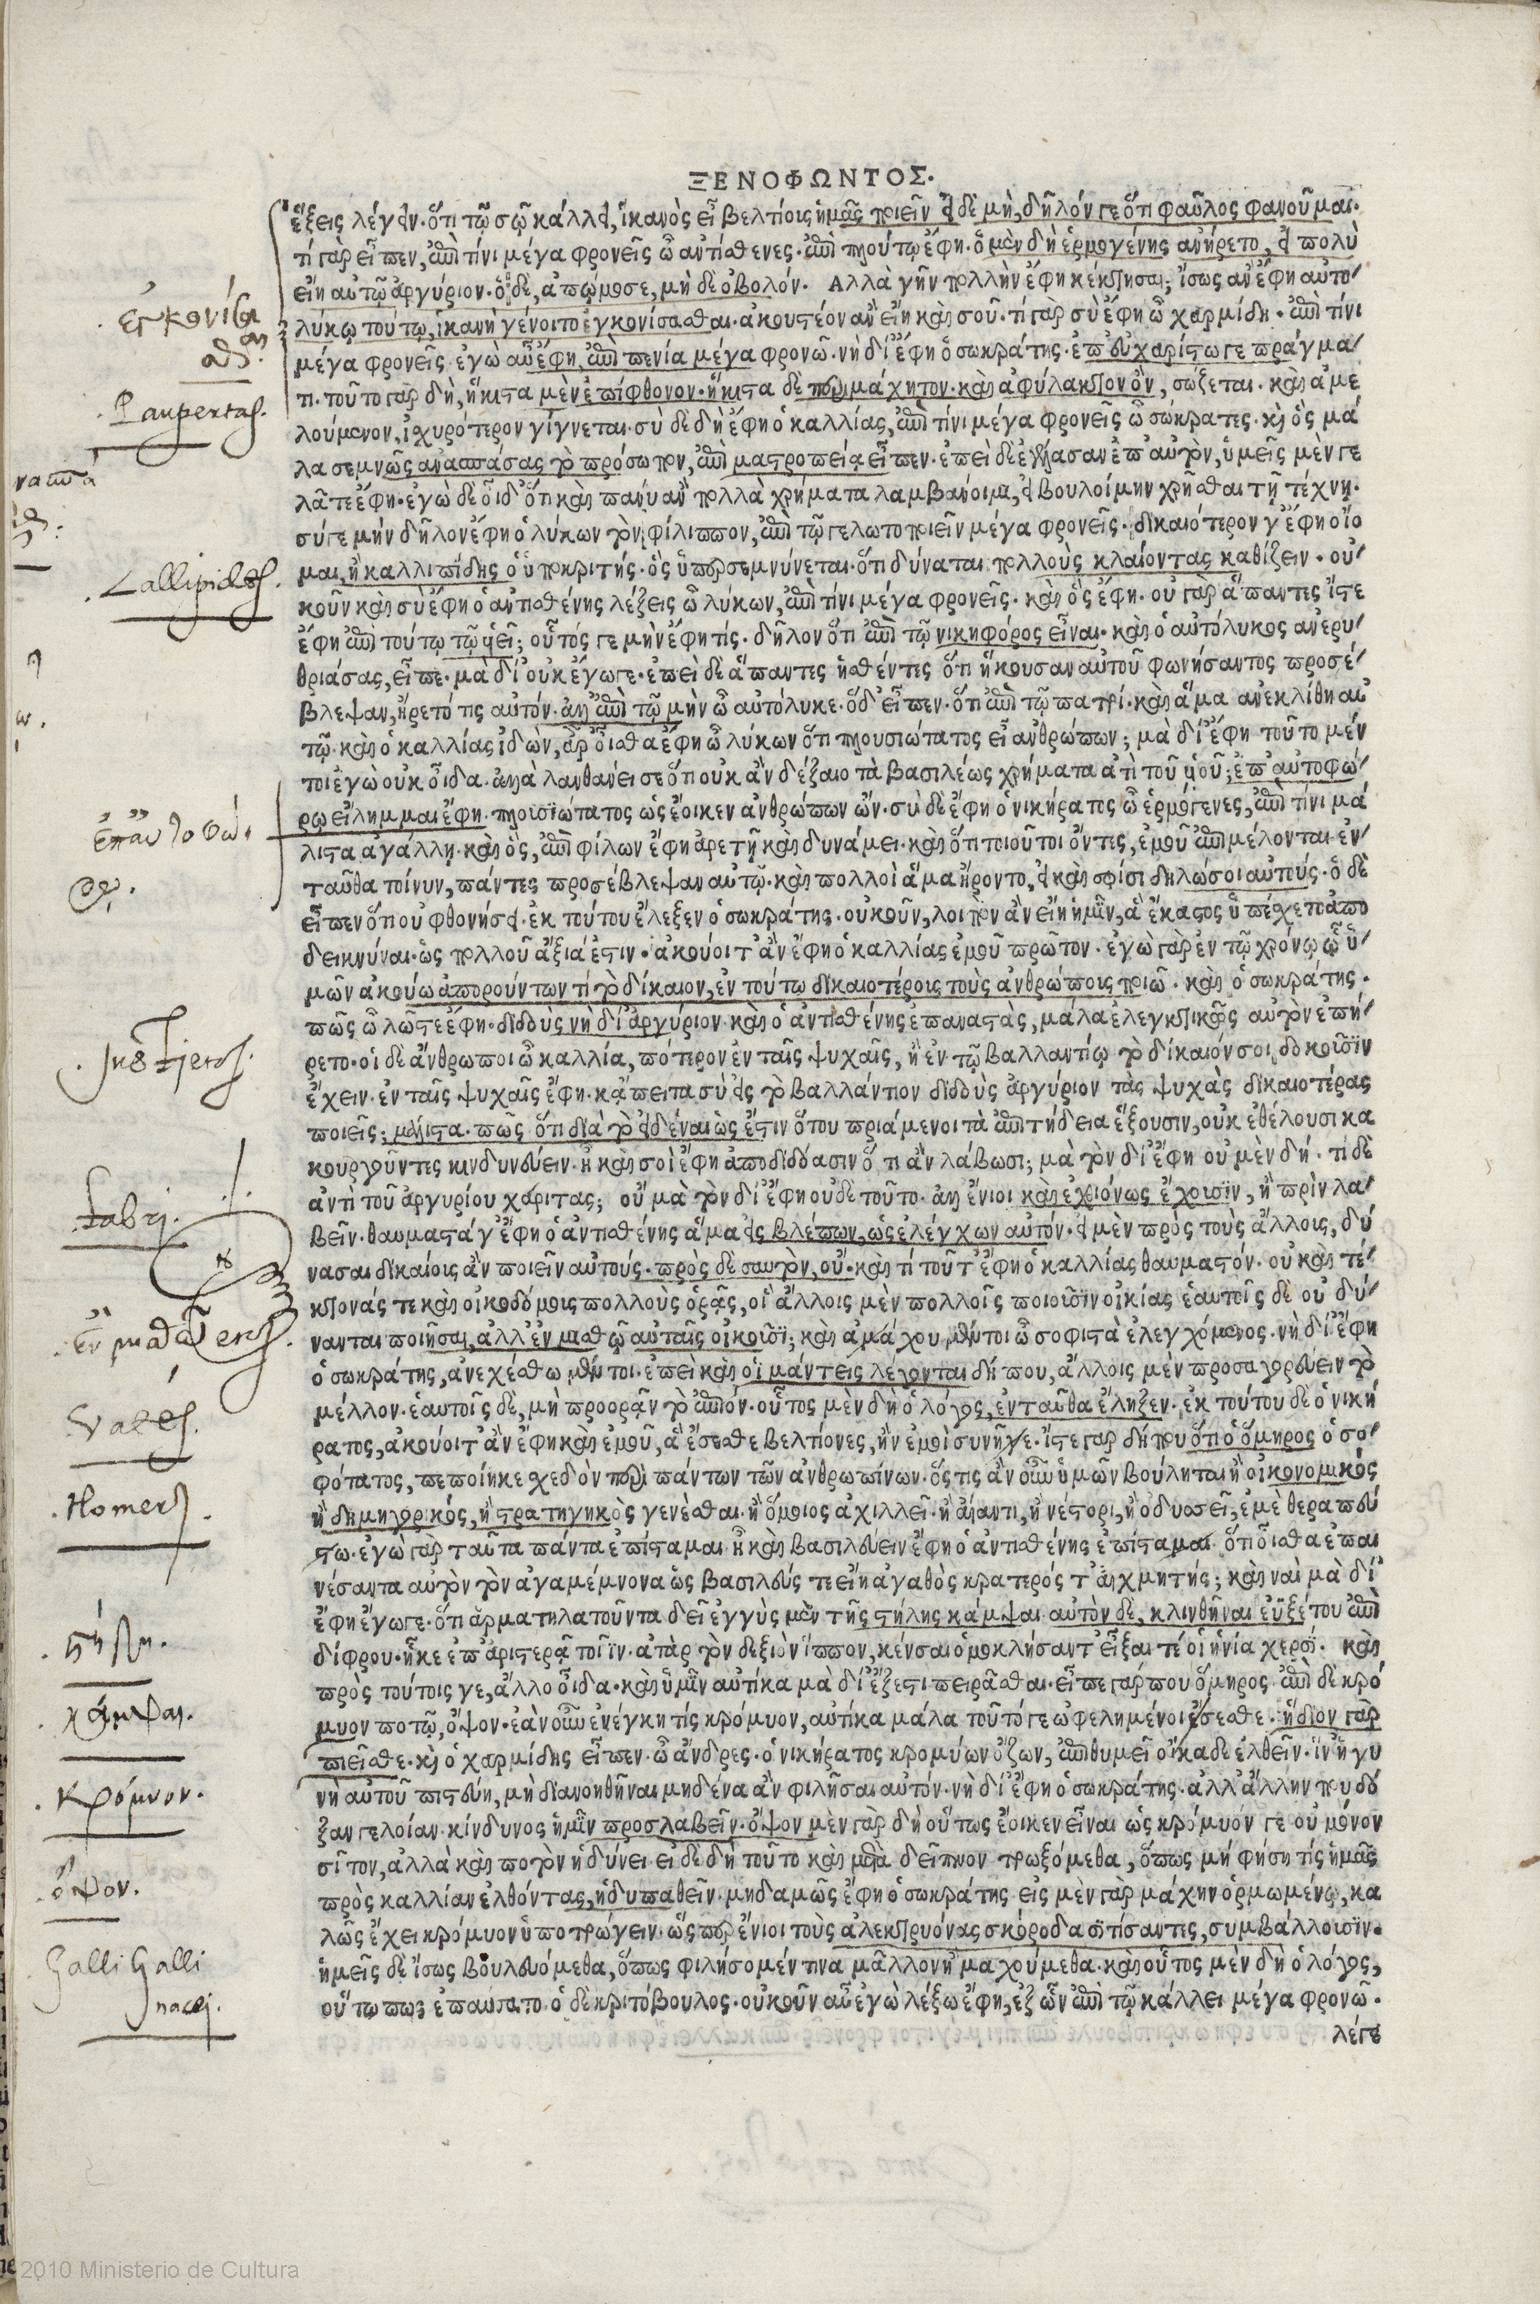 ΞΕΝΟΦΩΝΤΟΣ.
ἕξεις λέγειν· ὅτι τῷ σῷ κάλλει, ἱκανὸς εἶ βελτίοις ἡμᾶς ποιεῖν εἰ δὲ μὴ, δῆλόν γε ὅτι φαῦλος φανοῦμαι·
τί γὰρ εἶπεν, ἐπὶ τίνι μέγα φρονεῖς ὦ ἀντίσθενες· ἐπὶ πλούτῳ ἔφη· ὁ μὲν δὴ ἑρμογένης ἀνήρετο, εἰ πολὺ
εἴη αὐτῷ ἀργύριον· ὁ δὲ, ἀπώμοσε, μὴ δὲ ὀβολόν· Αλλὰ γῆν πολλὴν ἔφη κέκτησαι; ἴσως ἂν ἔφη αὐτο/
λύκῳ τούτῳ, ἱκανὴ γένοιτο ἐγκονίσασθαι· ἀκουστέον ἂν εἴη καὶ σοῦ· τί γὰρ σὺ ἔφη ὦ χαρμίδη· ἐπὶ τίνι
μέγα φρονεῖς· ἐγὼ αὖ ἔφη, ἐπὶ πενία μέγα φρονῶ· νὴ δί' ἔφη ὁ σωκράτης· ἐπ' εὐχαρίστω γε πράγμα/
τι· τοῦτο γὰρ δὴ, ἥκιστα μὲν ἐπίφθονον· ἥκιστα δὲ περιμάχητον· καὶ ἀφύλακτον ὂν, σώζεται· καὶ ἀμε
λούμενον, ἰσχυρότερον γίγνεται· σὺ δὲ δὴ ἔφη ὁ καλλίας, ἐπὶ τίνι μέγα φρονεῖς ὦ σώκρατες· καὶ ὃς μά
λα σεμνῶς ἀνασπάσας τὸ πρόσωπον, ἐπὶ μαστροπείᾳ εἶπεν· ἐπεὶ δὲ ἐγέλασαν ἐπ' αὐτὸν, ὑμεῖς μὲν γε
λᾶτε ἔφη· ἐγὼ δὲ οἶδ' ὅτι καὶ πάνυ ἂν πολλὰ χρήματα λαμβάνοιμι, εἰ βουλοίμην χρῆσθαι τῇ τέχνῃ·
σύ γε μὴν δῆλον ἔφη ὁ λύκων τὸν φίλιππον, ἐπὶ τῷ γελωτοποιεῖν μέγα φρονεῖς· δικαιότερον γ' ἔφη οἴο
μαι, ἢ καλλιπίδης ὁ ὑποκριτής· ὃς ὑπερσεμνύνεται· ὅτι δύναται πολλοὺς κλαίοντας καθίζειν· οὐ/
κοῦν καὶ σὺ ἔφη ὁ ἀντισθένης λέξεις ὦ λύκων, ἐπὶ τίνι μέγα φρονεῖς· καὶ ὃς ἔφη· οὐ γὰρ ἅπαντες ἴστε
ἔφη ἐπὶ τούτῳ τῷ υἱεῖ; οὗτός γε μὴν ἔφη τίς· δῆλον ὅτι ἐπὶ τῷ νικηφόρος εἶναι· καὶ ὁ αὐτόλυκος ἀνερυ/
θριάσας, εἶπε· μὰ δί' οὐκ ἔγωγε· ἐπεὶ δὲ ἅπαντες ἡσθέντες ὅτι ἤκουσαν αὐτοῦ φωνήσαντος προσέ/
βλεψαν, ἤρετό τις αὐτόν· ἀλλ' ἐπὶ τῷ μὴν ὦ αὐτόλυκε· ὁ δ' εἶπεν· ὅτι ἐπὶ τῷ πατρί· καὶ ἅμα ἀνεκλίθη αὐ
τῷ· καὶ ὁ καλλίας ἰδὼν, ἆρ' οἶσθα ἔφη ὦ λύκων ὅτι πλουσιώτατος εἶ ἀνθρώπων; μὰ δί' ἔφη τοῦτο μέν
τοι ἐγὼ οὐκ οἶδα· ἀλλὰ λανθάνει σε ὅτι οὐκ ἂν δέξαιο τὰ βασιλέως χρήματα ἀντὶ τοῦ υἱοῦ; ἐπ' αὐτοφώ/
ρῳ εἴλημμαι ἔφη· πλουσιώτατος ὡς ἔοικεν ἀνθρώπων ὤν· σὺ δὲ ἔφη ὁ νικήρατος ὦ ἑρμόγενες, ἐπὶ τίνι μά
λιστα ἀγάλλῃ· καὶ ὃς, ἐπὶ φίλων ἔφη ἀρετῇ καὶ δυνάμει· καὶ ὅτι τοιοῦτοι ὄντες, ἐμοῦ ἐπιμέλονται· ἐν
ταῦθα τοίνυν, πάντες προσέβλεψαν αὐτῷ· καὶ πολλοὶ ἅμα ἤροντο, εἰ καὶ σφίσι δηλώσοι αὐτούς· ὁ δὲ
εἶπεν ὅτι οὐ φθονήσει· ἐκ τούτου ἔλεξεν ὁ σωκράτης· οὐκοῦν, λοιπὸν ἂν εἴη ἡμῖν, ἃ ἕκαστος ὑπέσχετο ἀπο
δεικνύναι· ὡς πολλοῦ ἄξιά ἐστιν· ἀκούοιτ' ἂν ἔφη ὁ καλλίας ἐμοῦ πρῶτον· ἐγὼ γὰρ ἐν τῷ χρόνῳ ᾧ ὑ/
μῶν ἀκούω ἀπορούντων τί τὸ δίκαιον, ἐν τούτω δικαιοτέροις τοὺς ἀνθρώποις ποιῶ· καὶ ὁ σωκράτης·
πῶς ὦ λῷστε ἔφη· διδοὺς νὴ δί' ἀργύριον· καὶ ὁ ἀντισθένης ἐπαναστὰς, μάλα ἐλεγκτικῶς αὐτὸν ἐπή/
ρετο· οἱ δὲ ἄνθρωποι ὦ καλλία, πότερον ἐν ταῖς ψυχαῖς, ἢ ἐν τῷ βαλλαντίῳ τὸ δίκαιόν σοι δοκοῦσιν
ἔχειν· ἐν ταῖς ψυχαῖς ἔφη· κἄπειτα σὺ εἰς τὸ βαλλάντιον διδοὺς ἀργύριον τὰς ψυχὰς δικαιοτέρας
ποιεῖς; μάλιστα· πῶς· ὅτι διὰ τὸ εἰδέναι ὡς ἔστιν ὅτου πριάμενοι τὰ ἐπιτήδεια ἕξουσιν, οὐκ ἐθέλουσι κα
κουργοῦντες κινδυνεύειν· ἦ καὶ σοὶ ἔφη ἀποδιδόασιν ὅ τι ἂν λάβωσι; μὰ τὸν δί' ἔφη οὐ μὲν δή· τί δὲ
ἀντὶ τοῦ ἀργυρίου χάριτας; οὐ μὰ τὸν δί' ἔφη οὐδὲ τοῦτο· ἀλλ' ἔνιοι καὶ ἐχθιόνως ἔχουσιν, ἢ πρὶν λα/
βεῖν· θαυμαστά γ' ἔφη ὁ ἀντισθένης ἅμα εἰς βλέπων, ὡς ἐλέγχων αὐτόν· εἰ μὲν πρὸς τοὺς ἄλλοις, δύ
νασαι δικαίοις ἂν ποιεῖν αὐτούς· πρὸς δὲ σαυτὸν, οὔ· καὶ τί τοῦτ' ἔφη ὁ καλλίας θαυμαστόν· οὐ καὶ τέ/
κτονάς τε καὶ οἰκοδόμοις πολλοὺς ὁρᾷς, οἳ ἄλλοις μὲν πολλοῖς ποιοῦσιν οἰκίας ἑαυτοῖς δὲ οὐ δύ/
νανται ποιῆσαι, ἀλλ' ἐν μισθῷ αὐταῖς οἰκοῦσι; καὶ ἀμάχου μέντοι ὦ σοφιστὰ ἐλεγχόμενος· νὴ δί' ἔφη
ὁ σωκράτης, ἀνεχέσθω μέντοι· ἐπεὶ καὶ οἱ μάντεις λέγονται δή που, ἄλλοις μὲν προσαγορεύειν τὸ
μέλλον· ἑαυτοῖς δὲ, μὴ προορᾷν τὸ ἐπιόν· οὗτος μὲν δὴ ὁ λόγος, ἐνταῦθα ἔληξεν· ἐκ τούτου δὲ ὁ νική
ρατος, ἀκούοιτ' ἂν ἔφη καὶ ἐμοῦ, ἃ ἔσεσθε βελτίονες, ἢν ἐμοὶ συνῆτε· ἴστε γὰρ δή που ὅτι ὁ ὅμηρος ὁ σο/
φότατος, πεποίηκε σχεδὸν περὶ πάντων τῶν ἀνθρωπίνων· ὅς τις ἂν οὖν ὑμῶν βούληται ἢ οἰκονομικός
ἢ δημηγορικός, ἢ στρατηγικὸς γενέσθαι· ἢ ὅμοιος ἀχιλλεῖ· ἢ αἴαντι, ἢ νέστορι, ἢ ὀδυσσεῖ, ἐμὲ θεραπευ
έτω· ἐγὼ γὰρ ταῦτα πάντα ἐπίσταμαι· ἦ καὶ βασιλεύειν ἔφη ὁ ἀντισθένης ἐπίσταμαι· ὅτι οἶσθα ἐπαι
νέσαντα αὐτὸν τὸν ἀγαμέμνονα ὡς βασιλεύς τε εἴη ἀγαθὸς κρατερός τ' αἰχμητής; καὶ ναὶ μὰ δί'
ἔφη ἔγωγε· ὅτι ἁρματηλατοῦντα δεῖ ἐγγὺς μὲν τῆς στήλης κάμψαι αὐτὸν δὲ, κλινθῆναι ἐϋξέστου ἐπὶ
δίφρου· ἧκε ἐπ' ἀριστερᾷ τοῖϊν· ἀτὰρ τὸν δεξιὸν ἵππον, κένσαι ὁμοκλήσαντ' εἶξαι τέ οἱ ἡνία χερσί· καὶ
πρὸς τούτοις γε, ἄλλο οἶδα· καὶ ὑμῖν αὐτίκα μὰ δί' ἔξεστι πειρᾶσθαι· εἶπε γάρ που ὅμηρος· ἐπὶ δὲ κρό
μυον ποτῷ, ὄψον· ἐὰν οὖν ἐνέγκῃ τίς κρόμυον, αὐτίκα μάλα τοῦτό γε ὠφελημένοι ἔσεσθε· ἥδιον γὰρ
πιεῖσθε· καὶ ὁ χαρμίδης εἶπεν· ὦ ἄνδρες· ὁ νικήρατος κρομύων ὄζων, ἐπιθυμεῖ οἴκαδε ἐλθεῖν· ἵν' ἡ γυ
νὴ αὐτοῦ πιστεύῃ, μὴ διανοηθῆναι μηδένα ἂν φιλῆσαι αὐτόν· νὴ δί' ἔφη ὁ σωκράτης· ἀλλ' ἄλλην που δό
ξαν γελοίαν κίνδυνος ἡμῖν προσλαβεῖν· ὄψον μὲν γὰρ δὴ οὕτως ἔοικεν εἶναι ὡς κρόμυόν γε οὐ μόνον
σῖτον, ἀλλὰ καὶ ποτὸν ἡδύνει· εἰ δὲ δὴ τοῦτο καὶ μετὰ δεῖπνον τρωξόμεθα, ὅπως μή φήσῃ τίς ἡμᾶς
πρὸς καλλίαν ἐλθόντας, ἡδυπαθεῖν· μηδαμῶς ἔφη ὁ σωκράτης· εἰς μὲν γὰρ μάχην ὁρμωμένῳ, κα
λῶς ἔχει κρόμυον ὑποτρώγειν· ὥς περ ἔνιοι τοὺς ἀλεκτρυόνας σκόροδα σιτίσαντες, συμβάλλουσιν·
ἡμεῖς δὲ ἴσως βουλευόμεθα, ὅπως φιλήσομέν τινα μᾶλλον ἢ μαχούμεθα· καὶ οὗτος μὲν δὴ ὁ λόγος,
οὕτω πως ἐπαύσατο· ὁ δὲ κριτόβουλος· οὐκοῦν αὖ ἐγὼ λέξω ἔφη, ἐξ ὧν ἐπὶ τῷ κάλλει μέγα φρονῶ·
λέγε
ἐγκονίσα
σθ.
Paupertas.
Callipides.
ἐπαυτοφώ
ρῳ.
Fabri.
ἐν μισθῷ
Vates.
Homer
στήλη.
κάμψαι.
κρόμυον.
ὄψον.
Galli Galli
nacei.
2010 Ministerio de Cultura